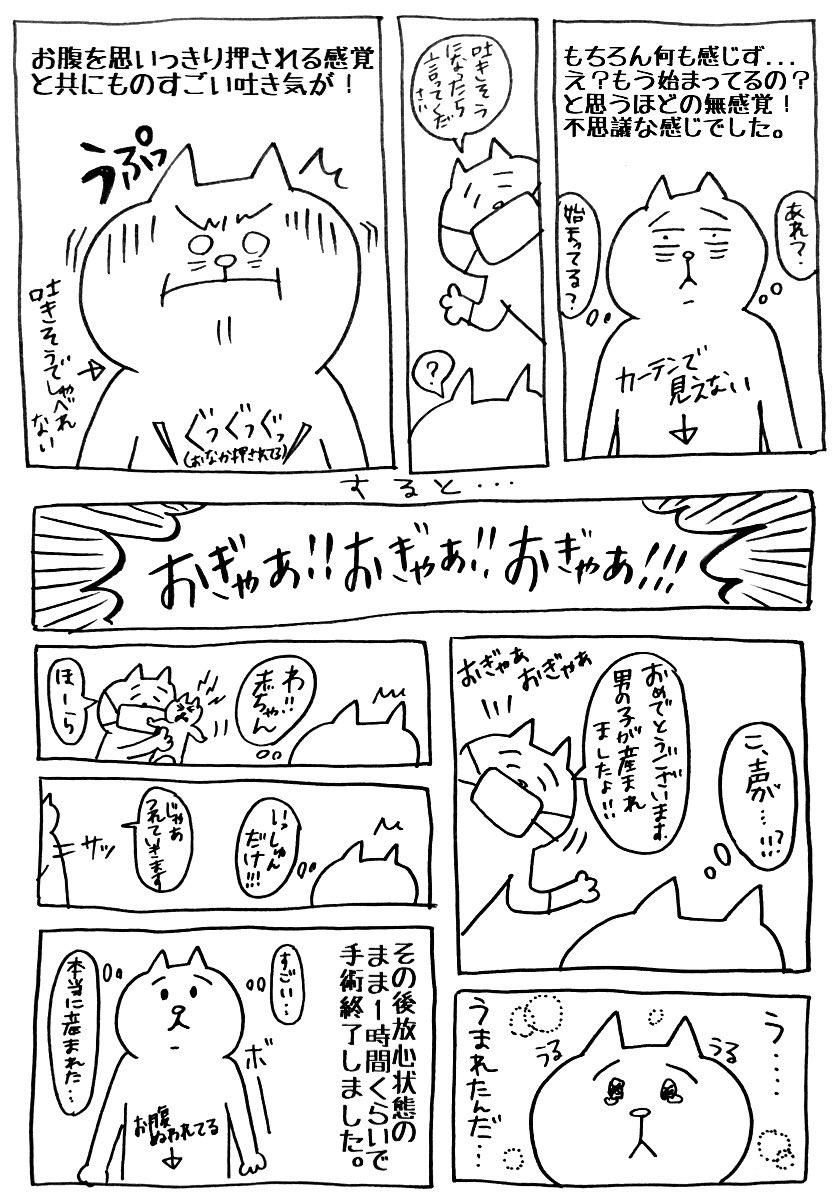 もちろん何も感じず...
え？もう始まってるの？
と思うほどの無感覚！
不思議な感じでした。
あれ？
始まってる？
カーテンで
見えない
吐きそう
になったら
言ってくだ
さい
？
お腹を思いっきり押される感覚
と共にものすごい吐き気が！
うぷっ
吐きそうでしゃべれ
ない
ぐっぐっぐっ
(おなか押されてる)
すると...
おぎゃあ!!おぎゃあ!!おぎゃあ!!!
おぎゃあ
おぎゃあ
おめでとうございます
男の子が産まれ
ましたよ!!
こ、声が…!!?
わ!!
赤ちゃん
ほーら
いっしゅん
だけ!!!
じゃあ
つれていきます
サッ
う....
うまれたんだ…
うる
うる
その後放心状態の
まま1時間くらいで
手術終了しました。
すごい…
本当に産まれた…
ボー
お腹
ぬわれてる